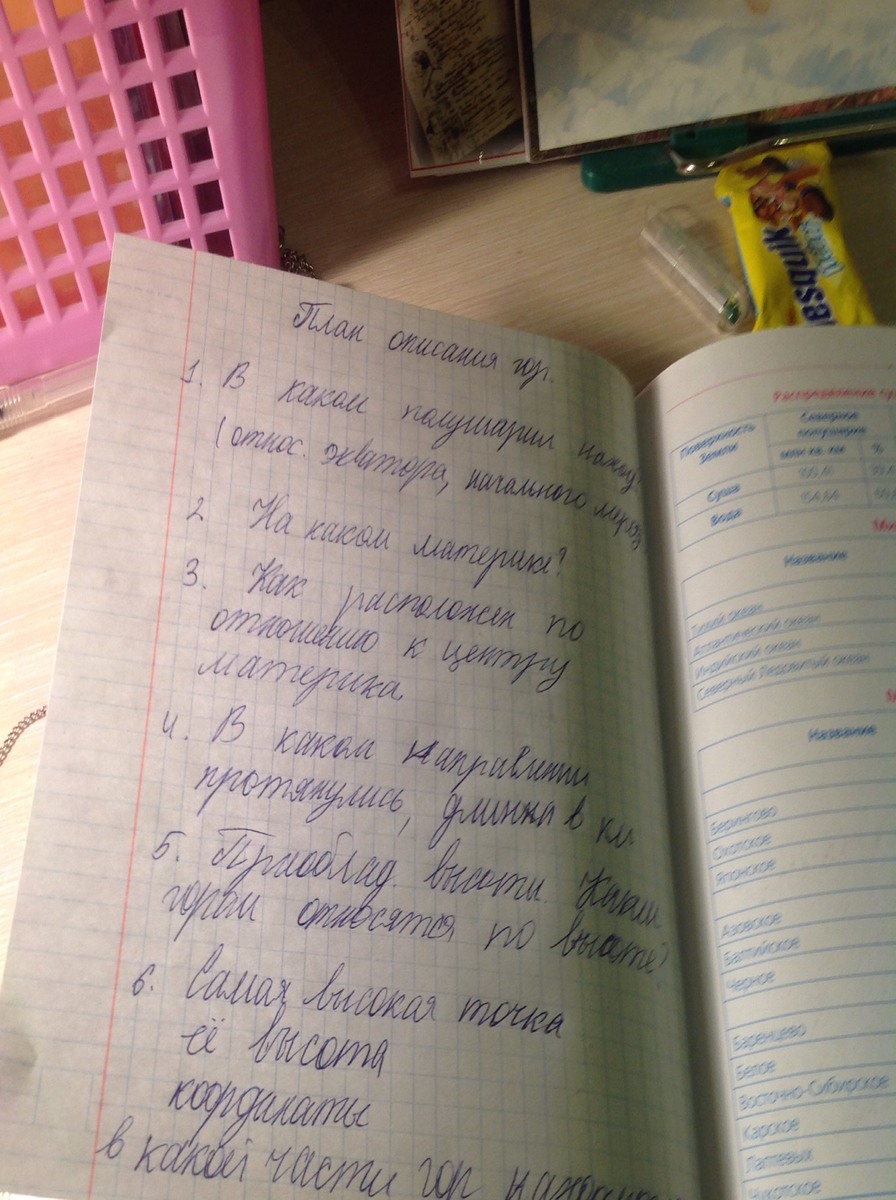 План описания гор.
1. В каком полушарии наход.
(относ. экватора, начального
2 На каком материке?
3. Как расположен по
отношению к центру
материка.
4. В каком направлении
протянулись, длинна в км
5. Преоблад. высоты. Каким
горам относятся по высоте?
6. Самая высокая точка
её высота
координаты
в какой части гор
Nesquik
Распределение
Поверхность
Земли
Северное
полушарие
млн кв. км
%
Суша
Вода
Название
Тихий океан
Атлантический океан
Индийский океан
Северный Ледовитый океан
Название
Берингово
Охотское
Японское
Азовское
Балтийское
Черное
Баренцево
Белое
Восточно-Сибирское
Карское
Лаптевых
Чукотское